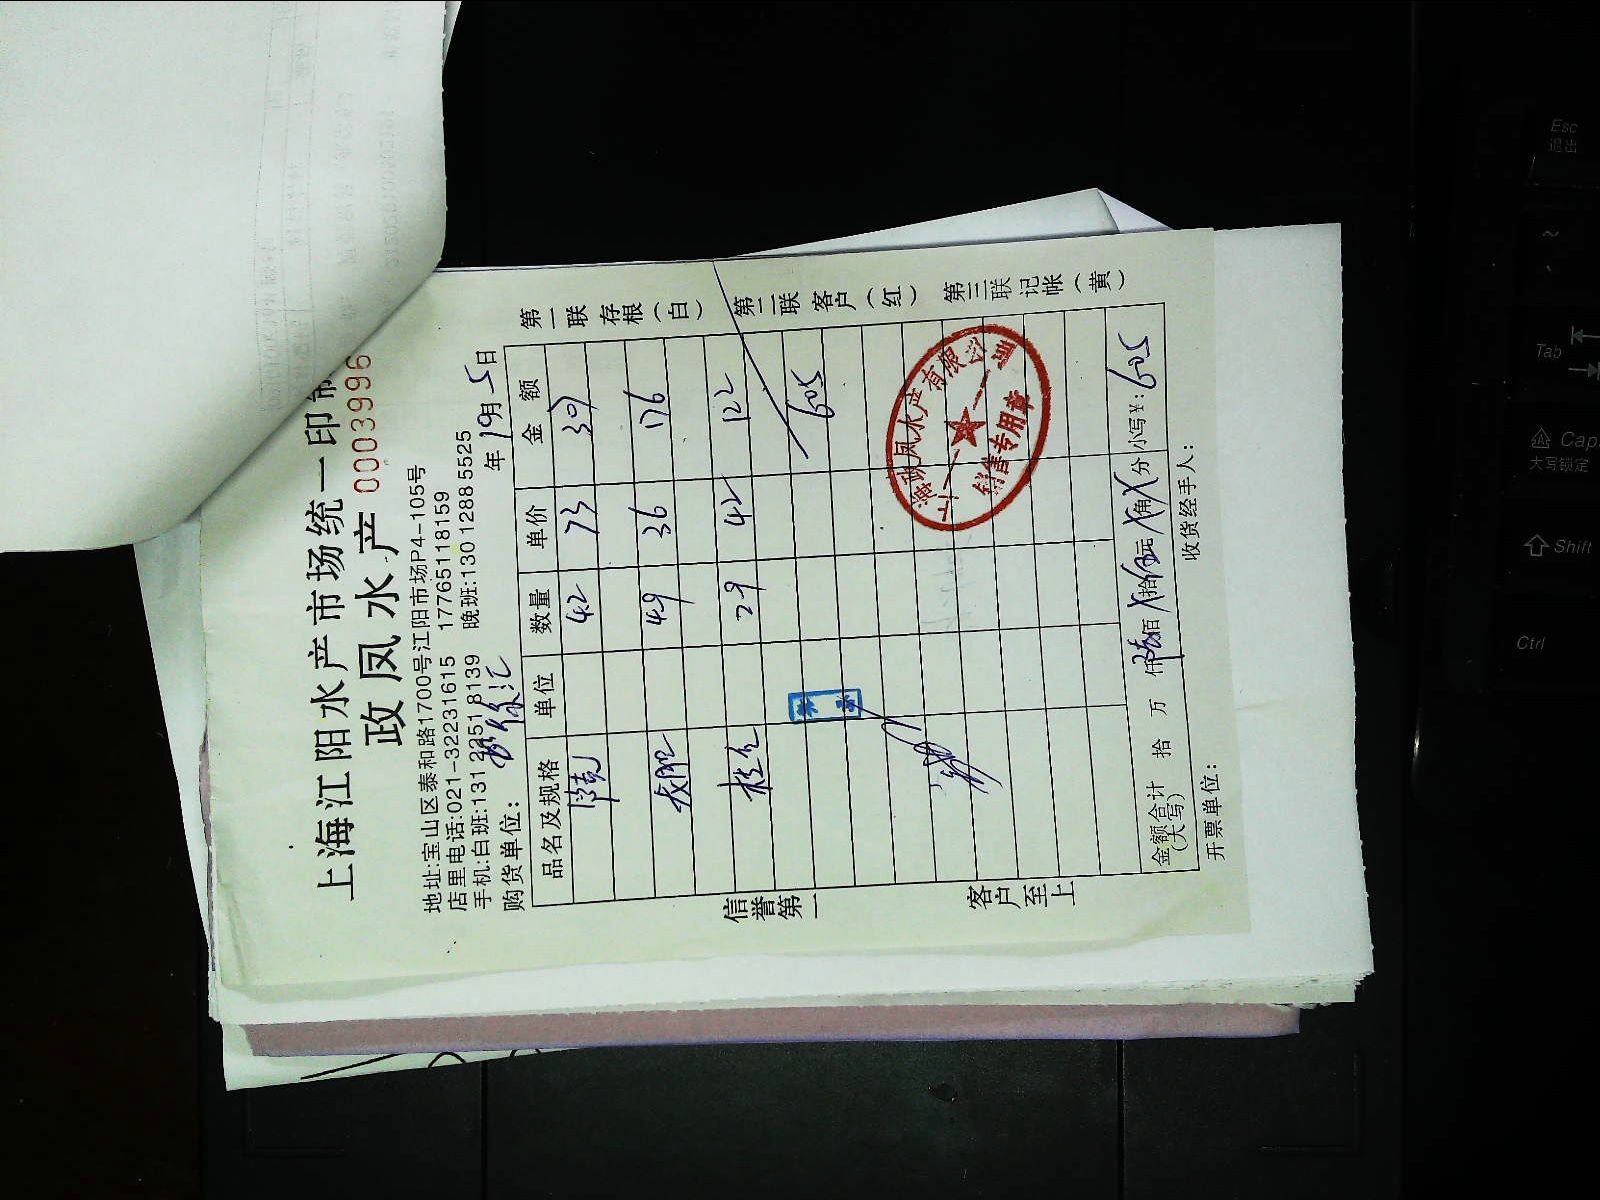 上海江阳水产市场统一印制
政凤水产 0003996
地址:宝山区泰和路1700号江阳市场P4-105号
店里电话:021-32231615 17765118159
手机:白班:131 2251 8139 晚班:130 1288 5525
购货单位: 年 9月5日
品名及规格 单位 数量 单价 金额
42 73 307
49 36 176
29 42 122
605
金额合计(大写) 拾 万 仟 陆佰 拾 伍元 角 分 小写¥:605
开票单位: 收货经手人:
第一联存根(白) 第二联客户(红) 第三联记帐(黄)
信誉第一 客户至上
上海政凤水产有限公司
销售专用章
Esc
退出
~
Tab
Caps
大写锁定
Shift
Ctrl